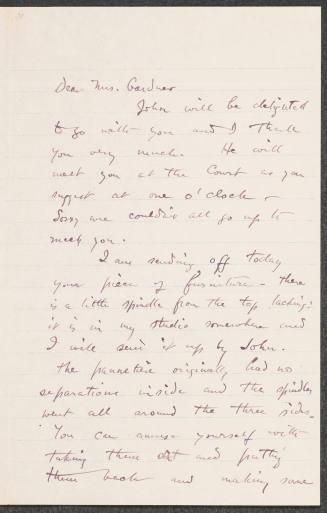 Dear Mrs. Gardner
John will be delighted
to go with you and I thank
you very much. He will
meet you at the Court as you
suggest at one o'clock –
Sorry we couldn't all go up to
meet you.
I am sending off today
your piece of furniture – there
is a little spindle from the top lacking:
it is in my studio somewhere and
I will send it up by John.
The pannetière originally had no
separations inside and the spindles
went all around the three sides –
You can amuse yourself with
taking them out and putting
them back and making some